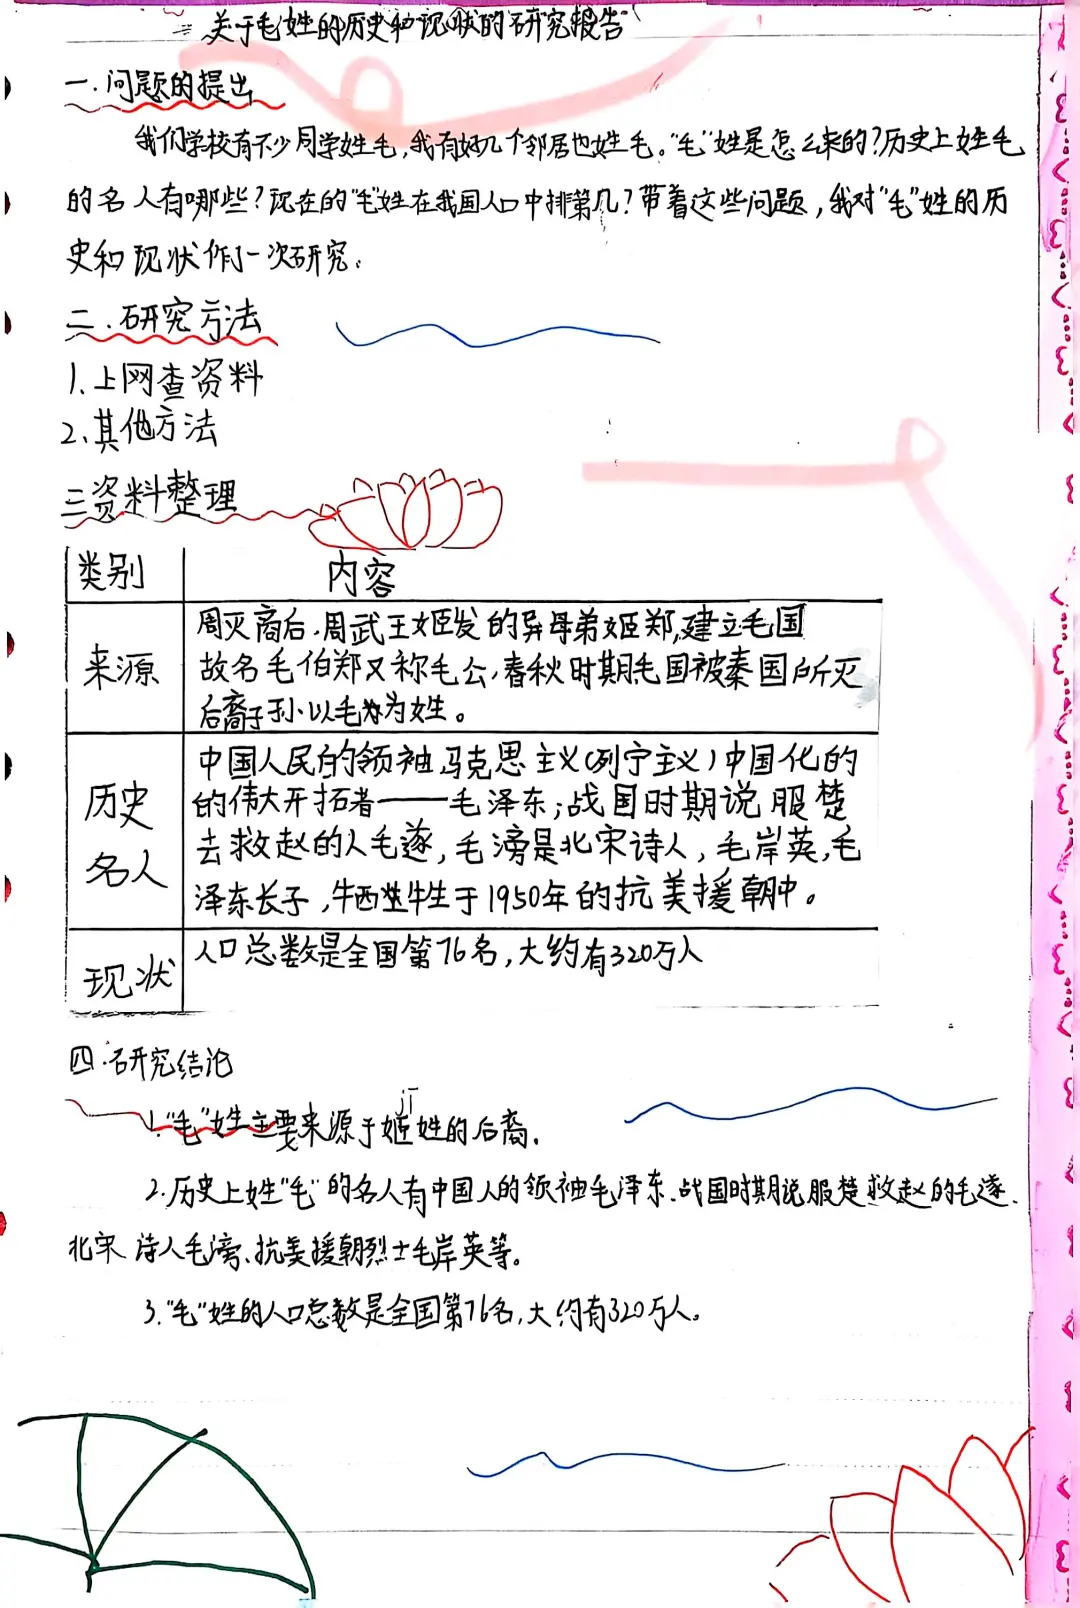 关于毛姓的历史和现状的研究报告
一.问题的提出
我们学校有不少同学姓毛,我有好几个邻居也姓毛。“毛”姓是怎么来的?历史上姓毛
的名人有哪些?现在的“毛”姓在我国人口中排第几?带着这些问题,我对“毛”姓的历
史和现状作了一次研究。
二.研究方法
1.上网查资料
2.其他方法
三资料整理
类别 内容
来源
周灭商后,周武王姬发的异母弟姬郑,建立毛国
故名毛伯郑又称毛公,春秋时期毛国被秦国所灭
后裔子孙以毛为姓。
历史名人
中国人民的领袖马克思主义(列宁主义)中国化的
的伟大开拓者——毛泽东;战国时期说服楚
去救赵的人毛遂,毛滂是北宋诗人,毛岸英,毛
泽东长子,牺牲于1950年的抗美援朝中。
现状
人口总数是全国第76名,大约有320万人
四.研究结论
jī
1.“毛”姓主要来源于姬姓的后裔.
2.历史上姓“毛”的名人有中国人的领袖毛泽东、战国时期说服楚救赵的毛遂、
北宋诗人毛滂、抗美援朝烈士毛岸英等。
3.“毛”姓的人口总数是全国第76名,大约有320万人。